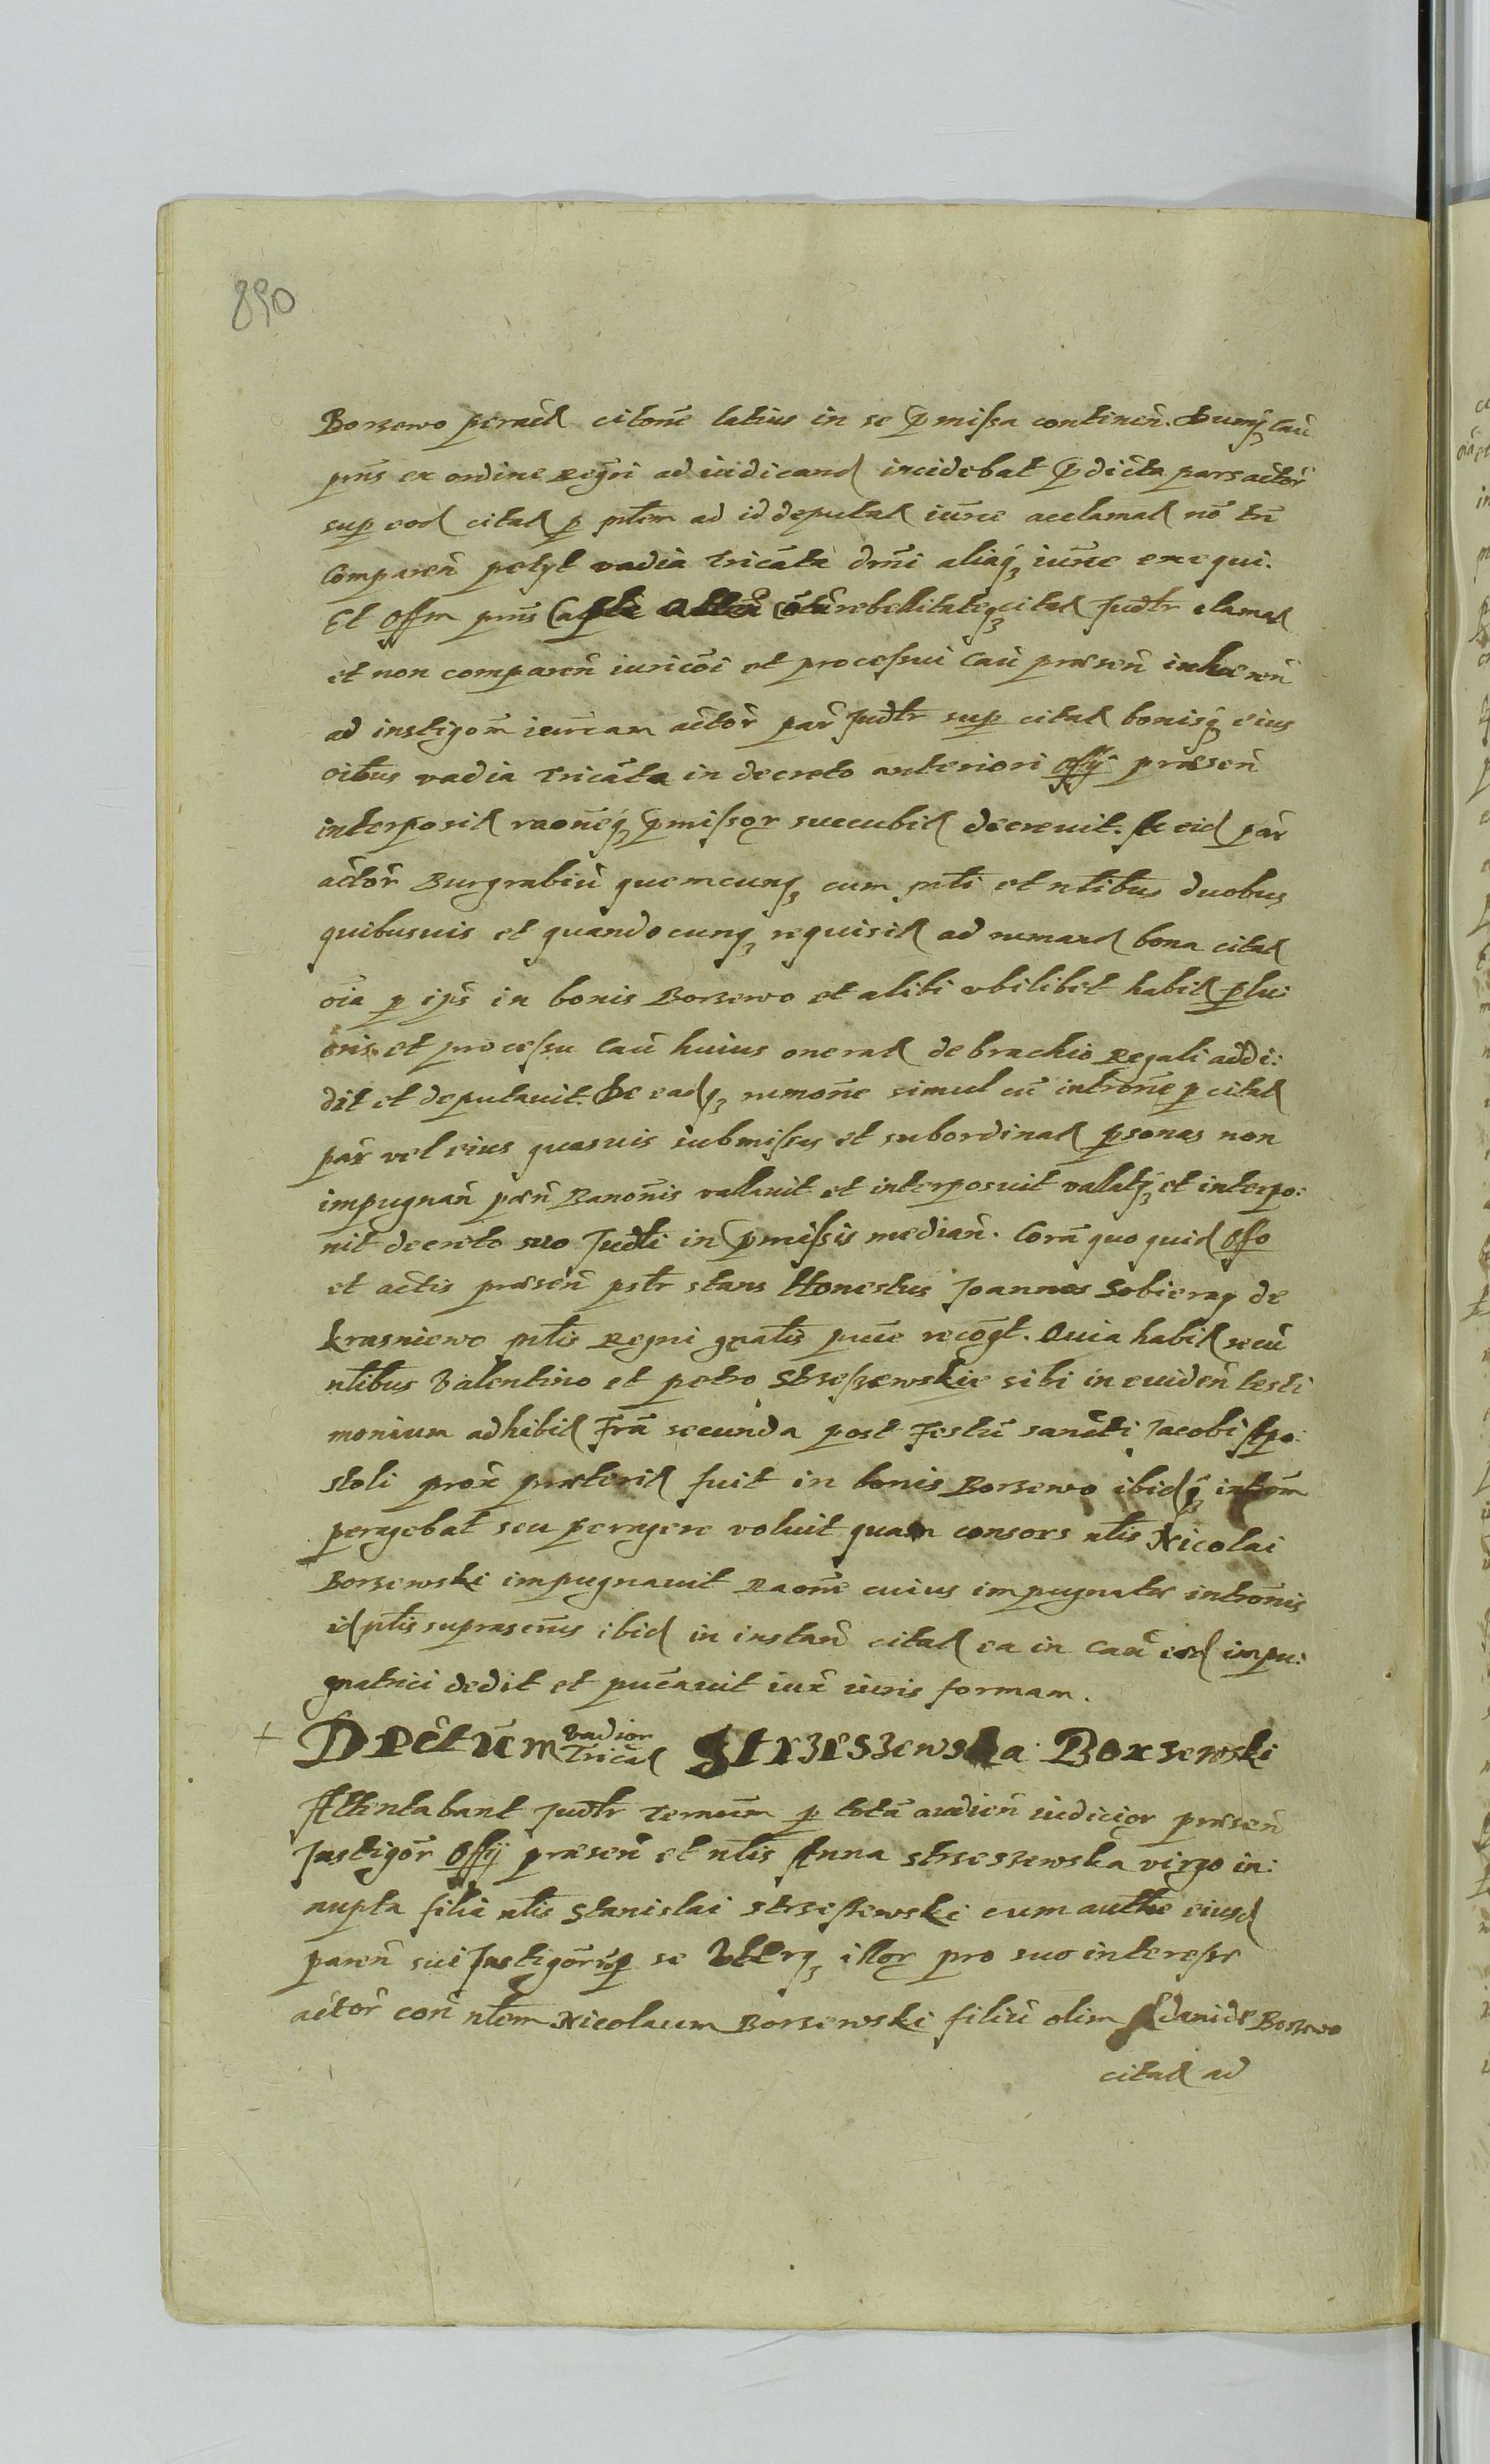 890
Borzewo peract citone latius in se p̄missa continen̄. Dumq̨ cau̅
pn̄s ex ordine Regr̄i ad iudicand incidebat p̄dicta pars actor̄
sup eod citat p mt̄lem ad id deputat iur̄ce acclamat nō tn̄
Comparen̄ petyt vadia Tricāta dr̄ni aliaq̨ iur̄ce exequi.
Et Offm pn̄s rebellitateq̨ citat Judlr clamat
et non comparen̄ iuricōi et processui Cau̅ præsen̄ inhæren̄
ad instigom̄ iurēam actor̄ par̄ Judlr sup citat bonisq̨ eius
oībus vadia Tricāta in decreto anteriori Offy præsen̄
interposit raonēq̨ p̄missor succubit decrevit. Ac eid par
actor̄ Burgrabiū quemcunq̨ cum mtl̄i et ntl̄ibus duobus
quibusvis et quandocunq̨ requisit ad rumand bona citat
oīa p ip̄s in bonis Borzewo et alibi ubilibet habit p lu:
cris et processu Cau̅ huius onerat de brachio Regali addi:
dit et deputavit. De eadq̨ rumonē simul cū intronē p citat
par̄ vel eius quasvis submissas et subordinat psonas non
impugnan̄ pæn̄ Banonīs vallavit et interposuit vallatq̨ et interpo:
nit decreto suo Judl̄i in p̄missis median̄. Corā quo quid Offo
et actis præsen̄ pstr̄ stans Honestus Joannes Sobieray de
Krasniewo mtl̄is Regni gn̄alis pūce recōgt. Quia habit secū
ntl̄ibus Valentino et Petro Strzeszewskie sibi in eviden̄ testi
monium adhibit Fr̄a secunda post Festū Sancti Jacobi Apo:
stoli prox̄ præterit fuit in bonis Borzewo ibidq̨ introm̄
peragebat seu peragere voluit quam consors ntl̄is Nicolai
Borzewski impugnavit Raonē cuius impugnatæ intronīs
id mtl̄is suprascr̄us ibid in instan̄ citat ea in cau̅ eod impu:
gnatrici dedit et pucāvit iux̄ iuris formam.
+ Dectum̄ vadior
Tricat Strzeszewska Borzewski
Attentabant Judlr Termīm p totā audien̄ iudicior præsen̄
Instigor̄ Offy præsen̄ et ntl̄is Anna Strzeszewska virgo in:
nupta filia ntl̄is Stanislai Strzeszewski cum authe eiusd
paren̄ sui Instigorūp se Vterq̨ illor pro suo interesse
actor̄ con̄ ntl̄em Nicolaum Borzewski filiū olim Adami de Borzewo
citat ad